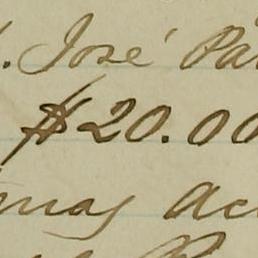 José Pa
$20.00
mas Ac